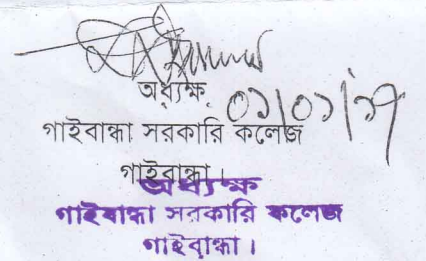 অধ্যক্ষ
০১/০১/১৭
গাইবান্ধা সরকারি কলেজ
গাইবান্ধা।
অধ্যক্ষ
গাইবান্ধা সরকারি কলেজ
গাইবান্ধা।